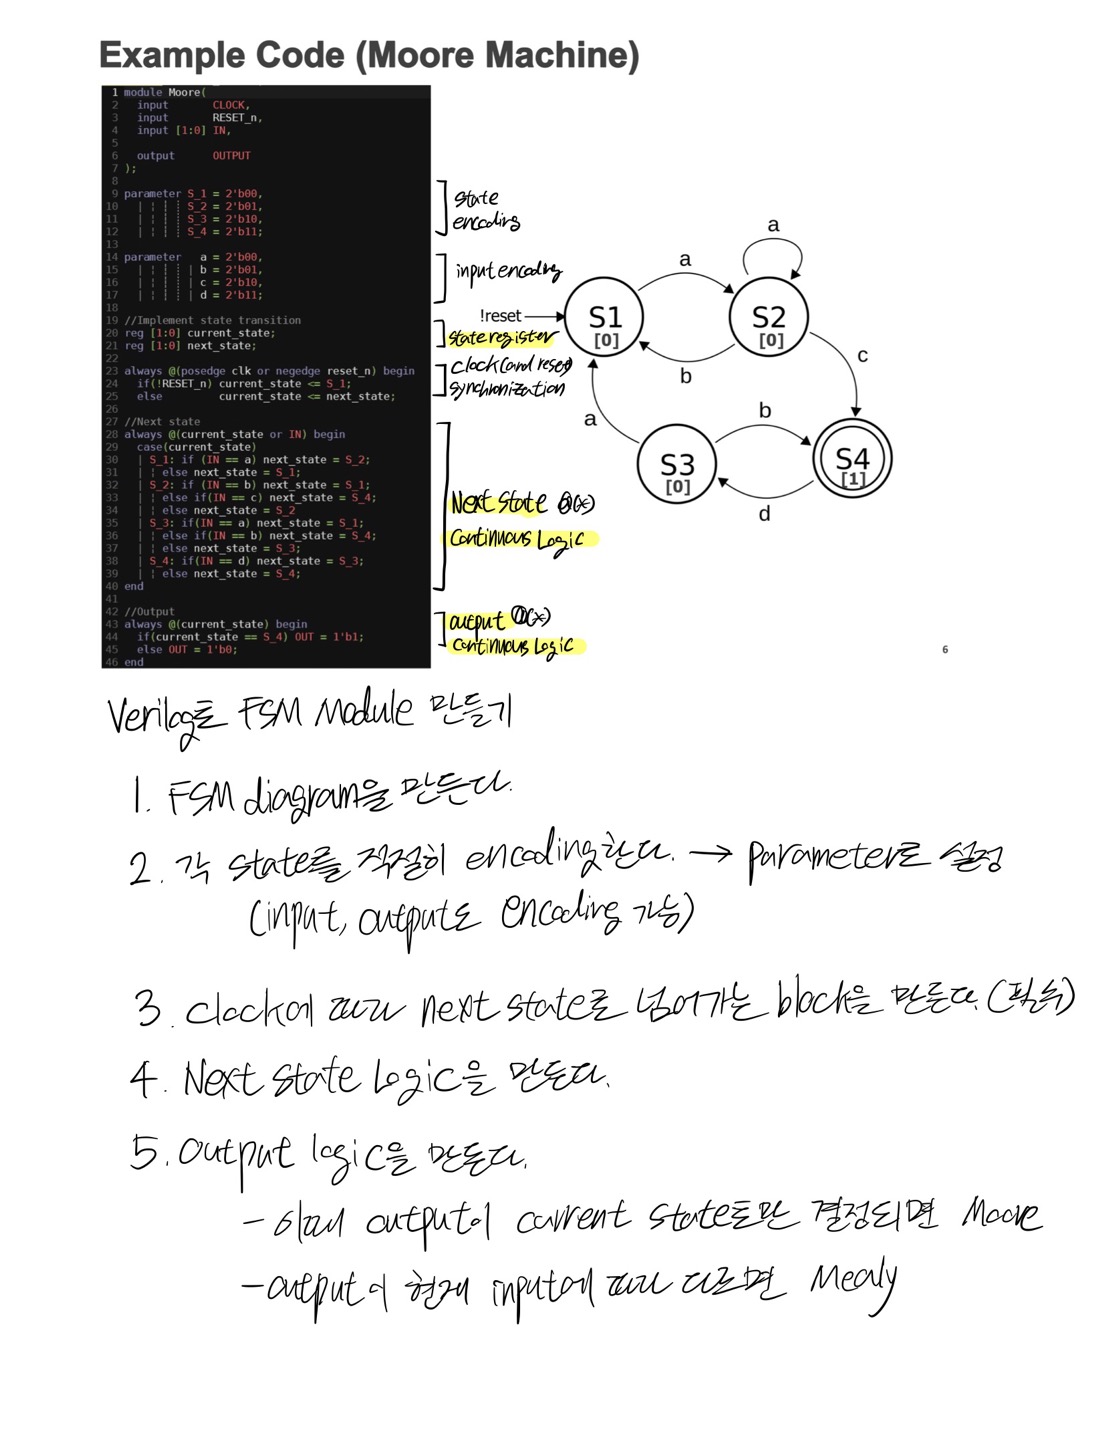 Example Code (Moore Machine)
1 module Moore(
2 input CLOCK,
3 input RESET_n,
4 input [1:0] IN,
5
6 output OUTPUT
7 );
8
9 parameter S_1 = 2'b00,
10 S_2 = 2'b01,
11 S_3 = 2'b10,
12 S_4 = 2'b11;
13
14 parameter a = 2'b00,
15 b = 2'b01,
16 c = 2'b10,
17 d = 2'b11;
18
19 //Implement state transition
20 reg [1:0] current_state;
21 reg [1:0] next_state;
22
23 always @(posedge clk or negedge reset_n) begin
24 if(!RESET_n) current_state <= S_1;
25 else current_state <= next_state;
26
27 //Next state
28 always @(current_state or IN) begin
29 case(current_state)
30 S_1: if (IN == a) next_state = S_2;
31 else next_state = S_1;
32 S_2: if (IN == b) next_state = S_1;
33 else if(IN == c) next_state = S_4;
34 else next_state = S_2
35 S_3: if(IN == a) next_state = S_1;
36 else if(IN == b) next_state = S_4;
37 else next_state = S_3;
38 S_4: if(IN == d) next_state = S_3;
39 else next_state = S_4;
40 end
41
42 //Output
43 always @(current_state) begin
44 if(current_state == S_4) OUT = 1'b1;
45 else OUT = 1'b0;
46 end
state
encoding
input encoding
state register
clock(and reset)
synchronization
Next State
Continuous Logic
output
Continuous Logic
a
a
!reset
S1
[0]
S2
[0]
b
c
a
b
S3
[0]
S4
[1]
d
6
Verilog로 FSM Module 만들기
1. FSM diagram을 만든다.
2. 각 state를 적절히 encoding한다. → parameter로 설정
(input, output도 encoding 가능)
3. clock에 따라 next state로 넘어가는 block을 만든다. (필수)
4. Next state Logic을 만든다.
5. Output logic을 만든다.
- 이때 output이 current state로만 결정되면 Moore
- output이 현재 input에 따라 다르면 Mealy